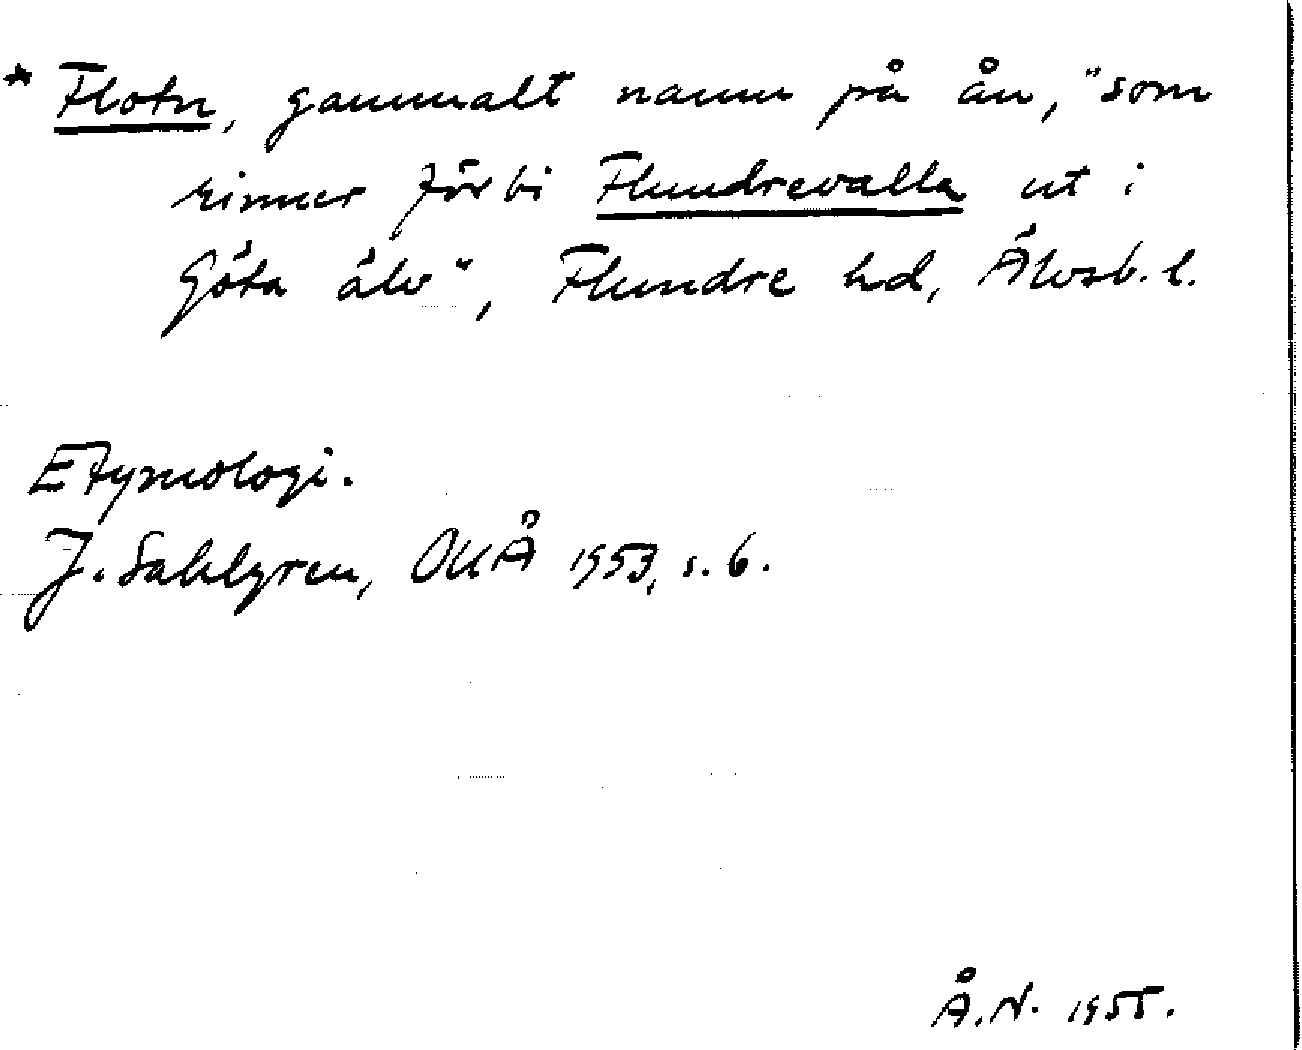 * Flotn, gammalt namn på ån, "som
rinner förbi Flundrevalla ut i
Göta älv", Flundre hd, Älvsb. l.
Etymologi.
J. Sahlgren, OUÅ 1953, s. 6.
Å.N. 1955.